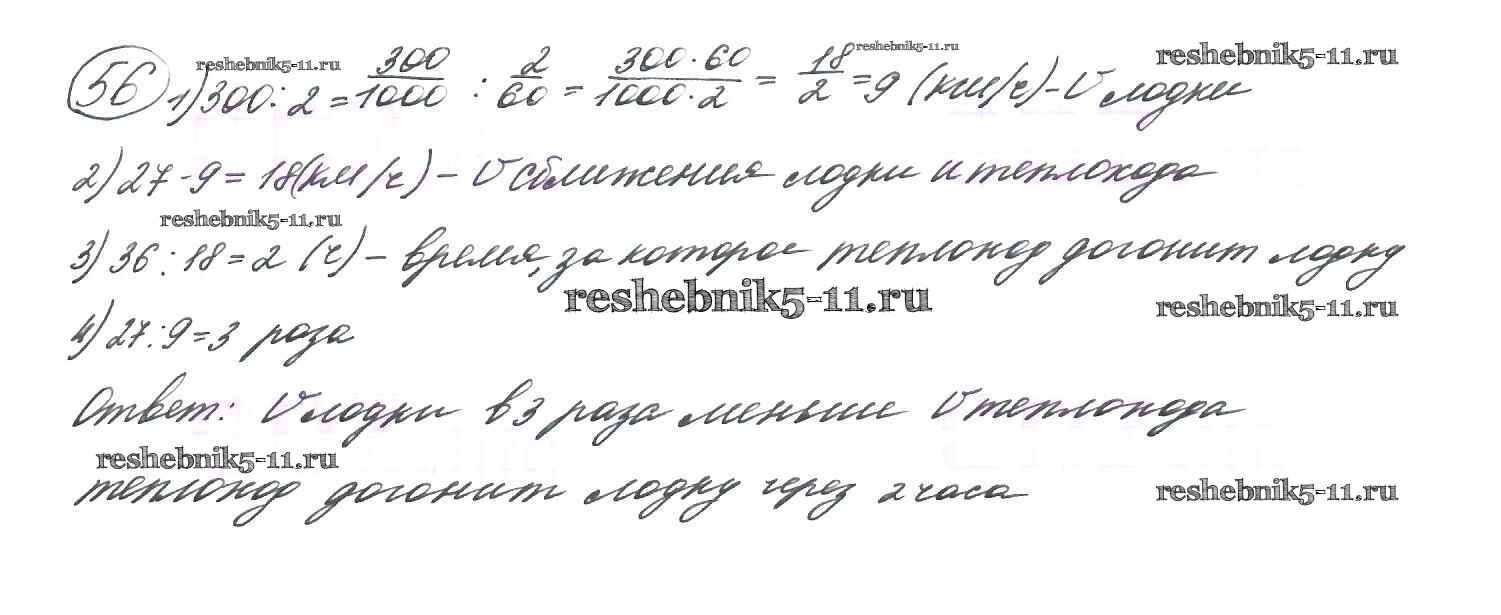 reshebnik5-11.ru
reshebnik5-11.ru
reshebnik5-11.ru
56 1) 300 : 2 = 300/1000 : 2/60 = 300·60/1000·2 = 18/2 = 9 (км/ч) - V лодки
2) 27 - 9 = 18 (км/ч) - V сближения лодки и теплохода
reshebnik5-11.ru
3) 36 : 18 = 2 (ч) - время, за которое теплоход догонит лодку
reshebnik5-11.ru
reshebnik5-11.ru
4) 27 : 9 = 3 раза
Ответ: V лодки в 3 раза меньше V теплохода
reshebnik5-11.ru
теплоход догонит лодку через 2 часа
reshebnik5-11.ru